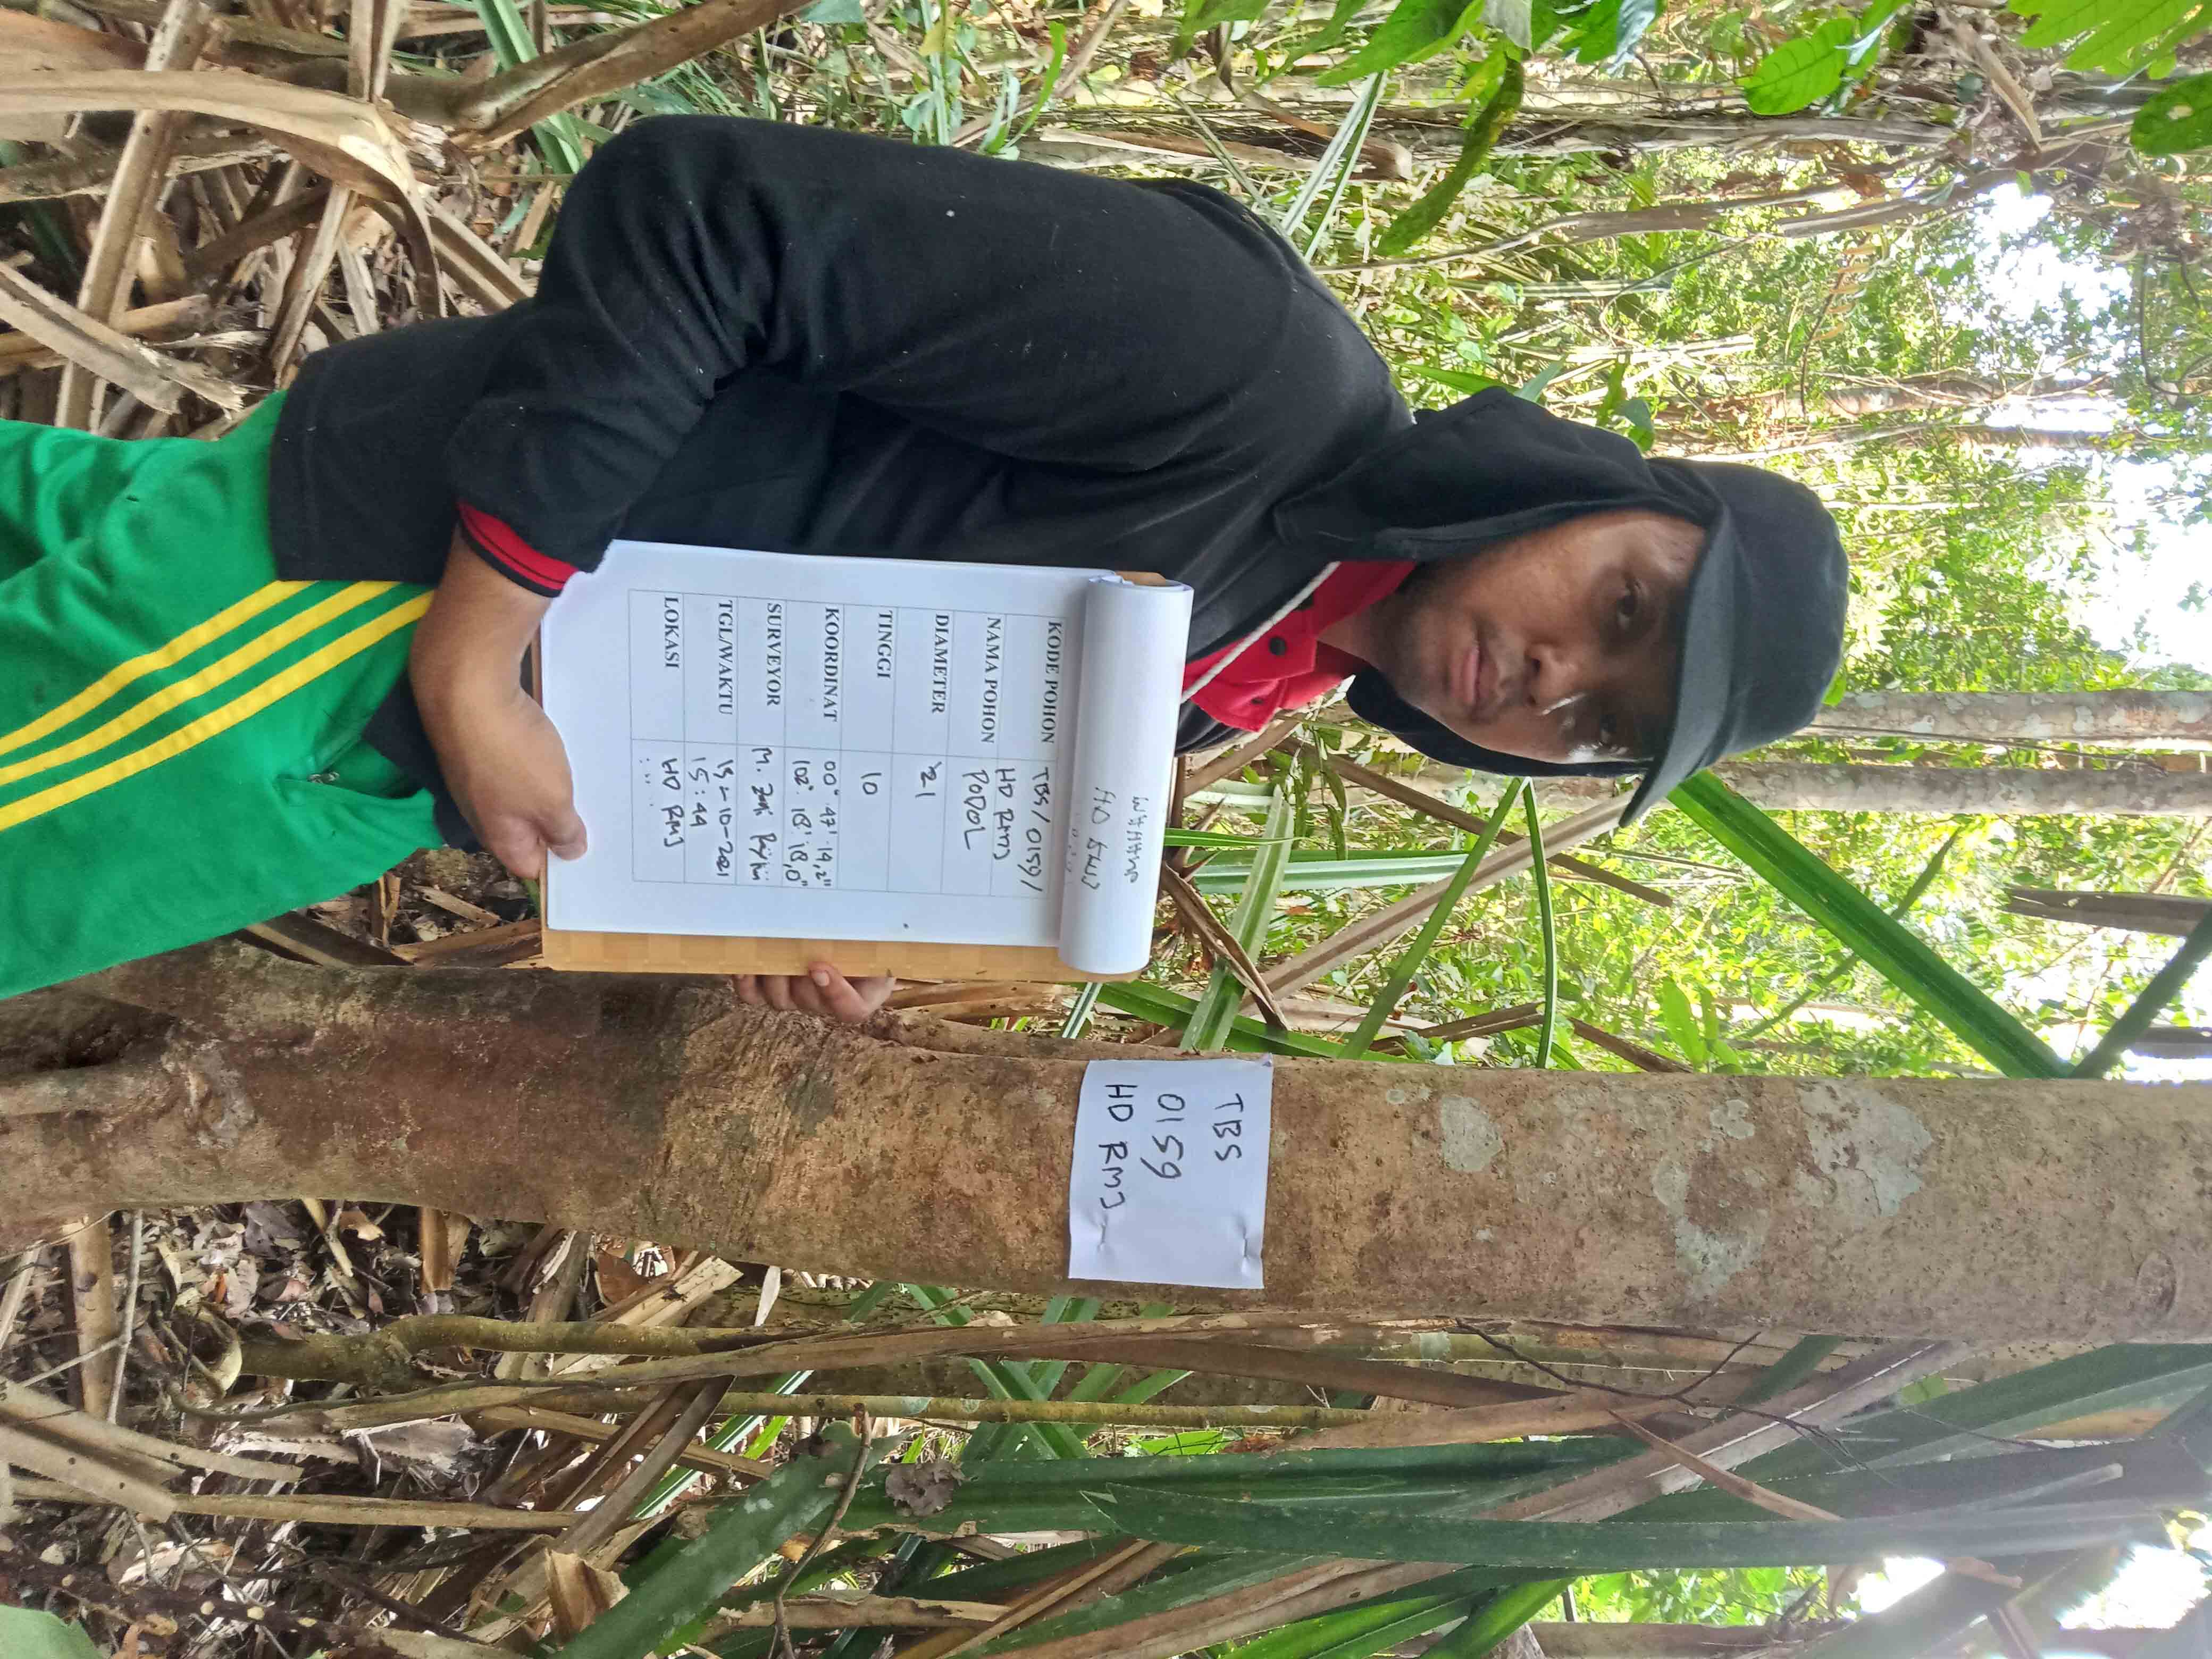 KODE POHON TBS/0159/
HD RMJ
NAMA POHON PODOL
DIAMETER 21
TINGGI 10
KOORDINAT 00° 47' 14,2"
102° 18' 18,0"
SURVEYOR M.
TGL/WAKTU 15-10-2021
15:44
LOKASI HD RMJ
TBS
0159
HD RMJ